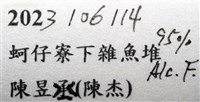 2023/06/14
蚵仔寮下雜魚堆 95%
Alc. F.
陳昱丞(陳杰)